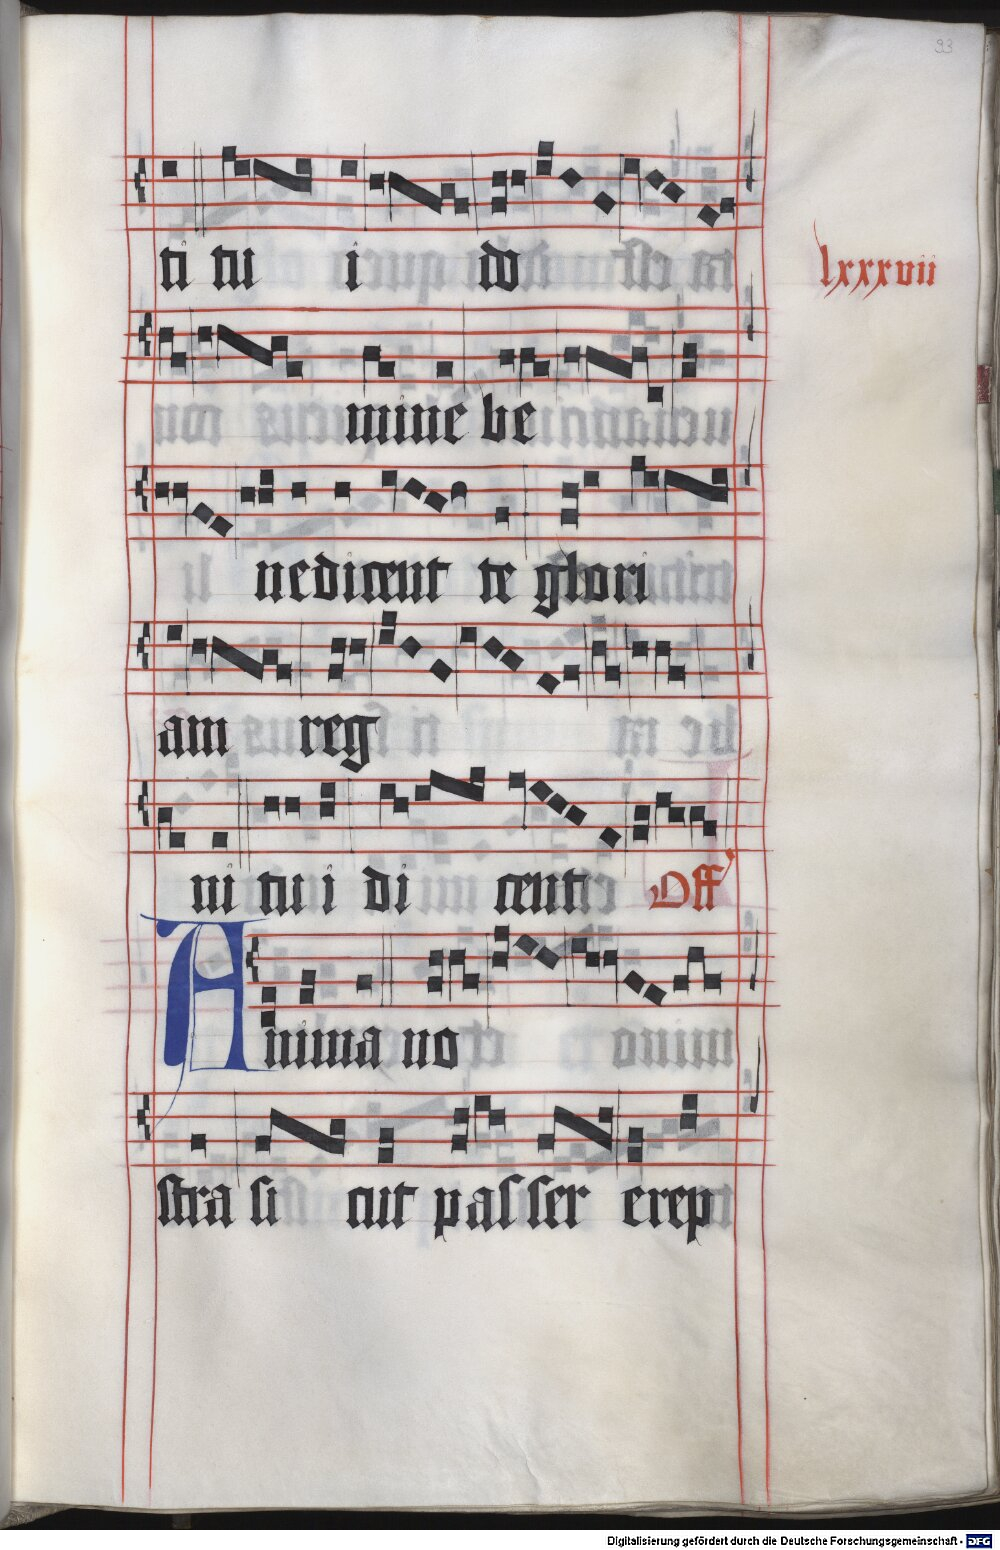 93
ti tu i do
lxxxvii
mine be
nedicent te glori
am reg
ni tu i di cent Off
Anima no
stra si cut passer erept
Digitalisierung gefördert durch die Deutsche Forschungsgemeinschaft - DFG